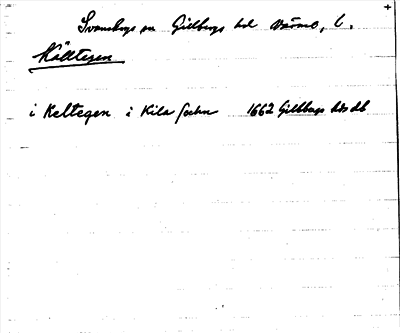 Svanskogs sn Gillbergs hd Värml. l.
Källtegen
i Keltegen i Kila sochn 1662 Gillbergs hds db